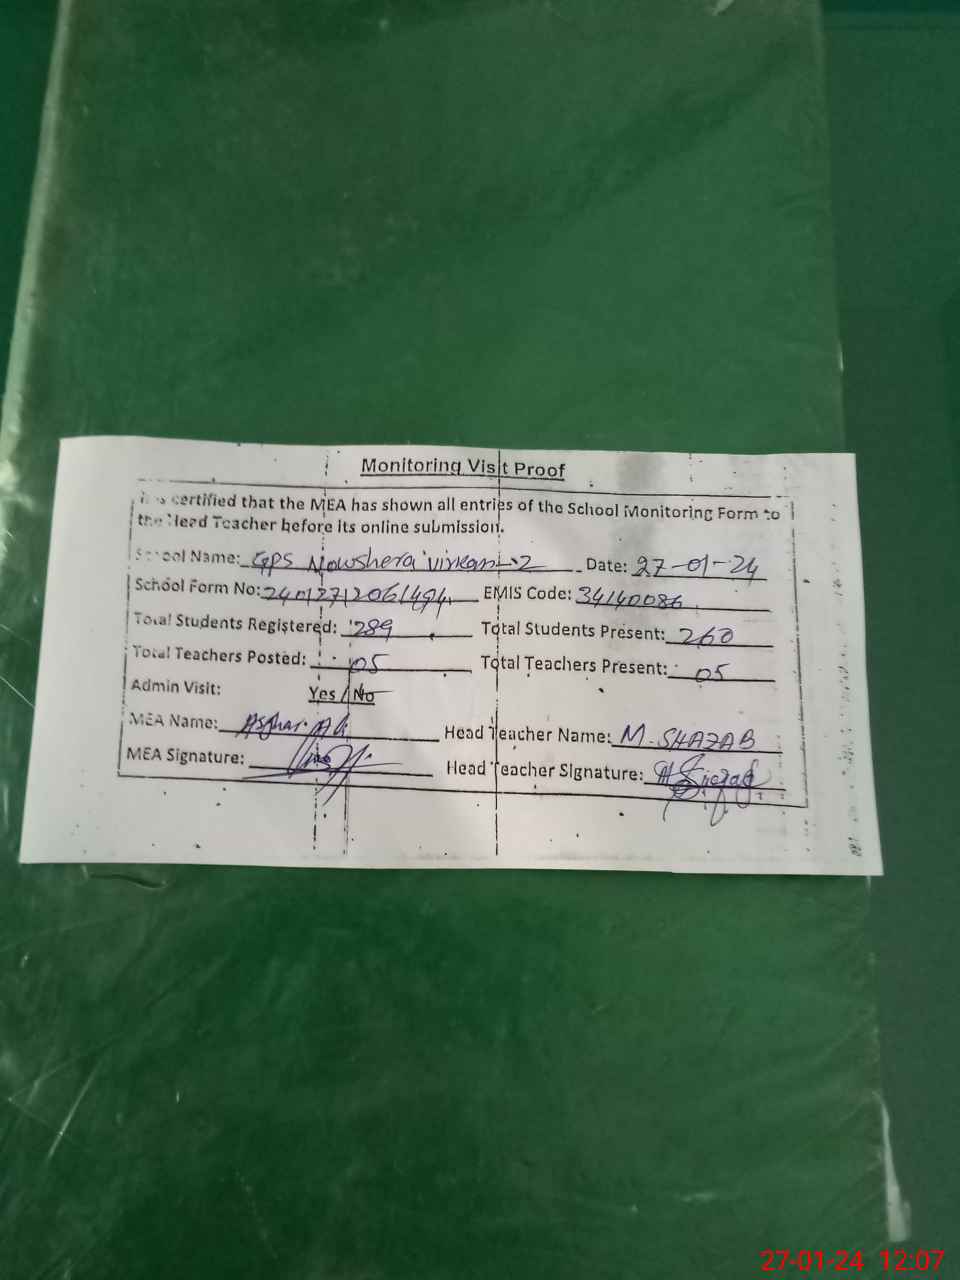 Monitoring Visit Proof
It is certified that the MEA has shown all entries of the School Monitoring Form to
the Head Teacher before its online submission.
School Name: GPS Nowshera Virkan-2 Date: 27-01-24
School Form No: 24012712061494 EMIS Code: 34140086
Total Students Registered: 289 Total Students Present: 260
Total Teachers Posted: 05 Total Teachers Present: 05
Admin Visit: Yes / No
MEA Name: Asghar Ali Head Teacher Name: M. SHAZAB
MEA Signature: Head Teacher Signature:
27-01-24 12:07